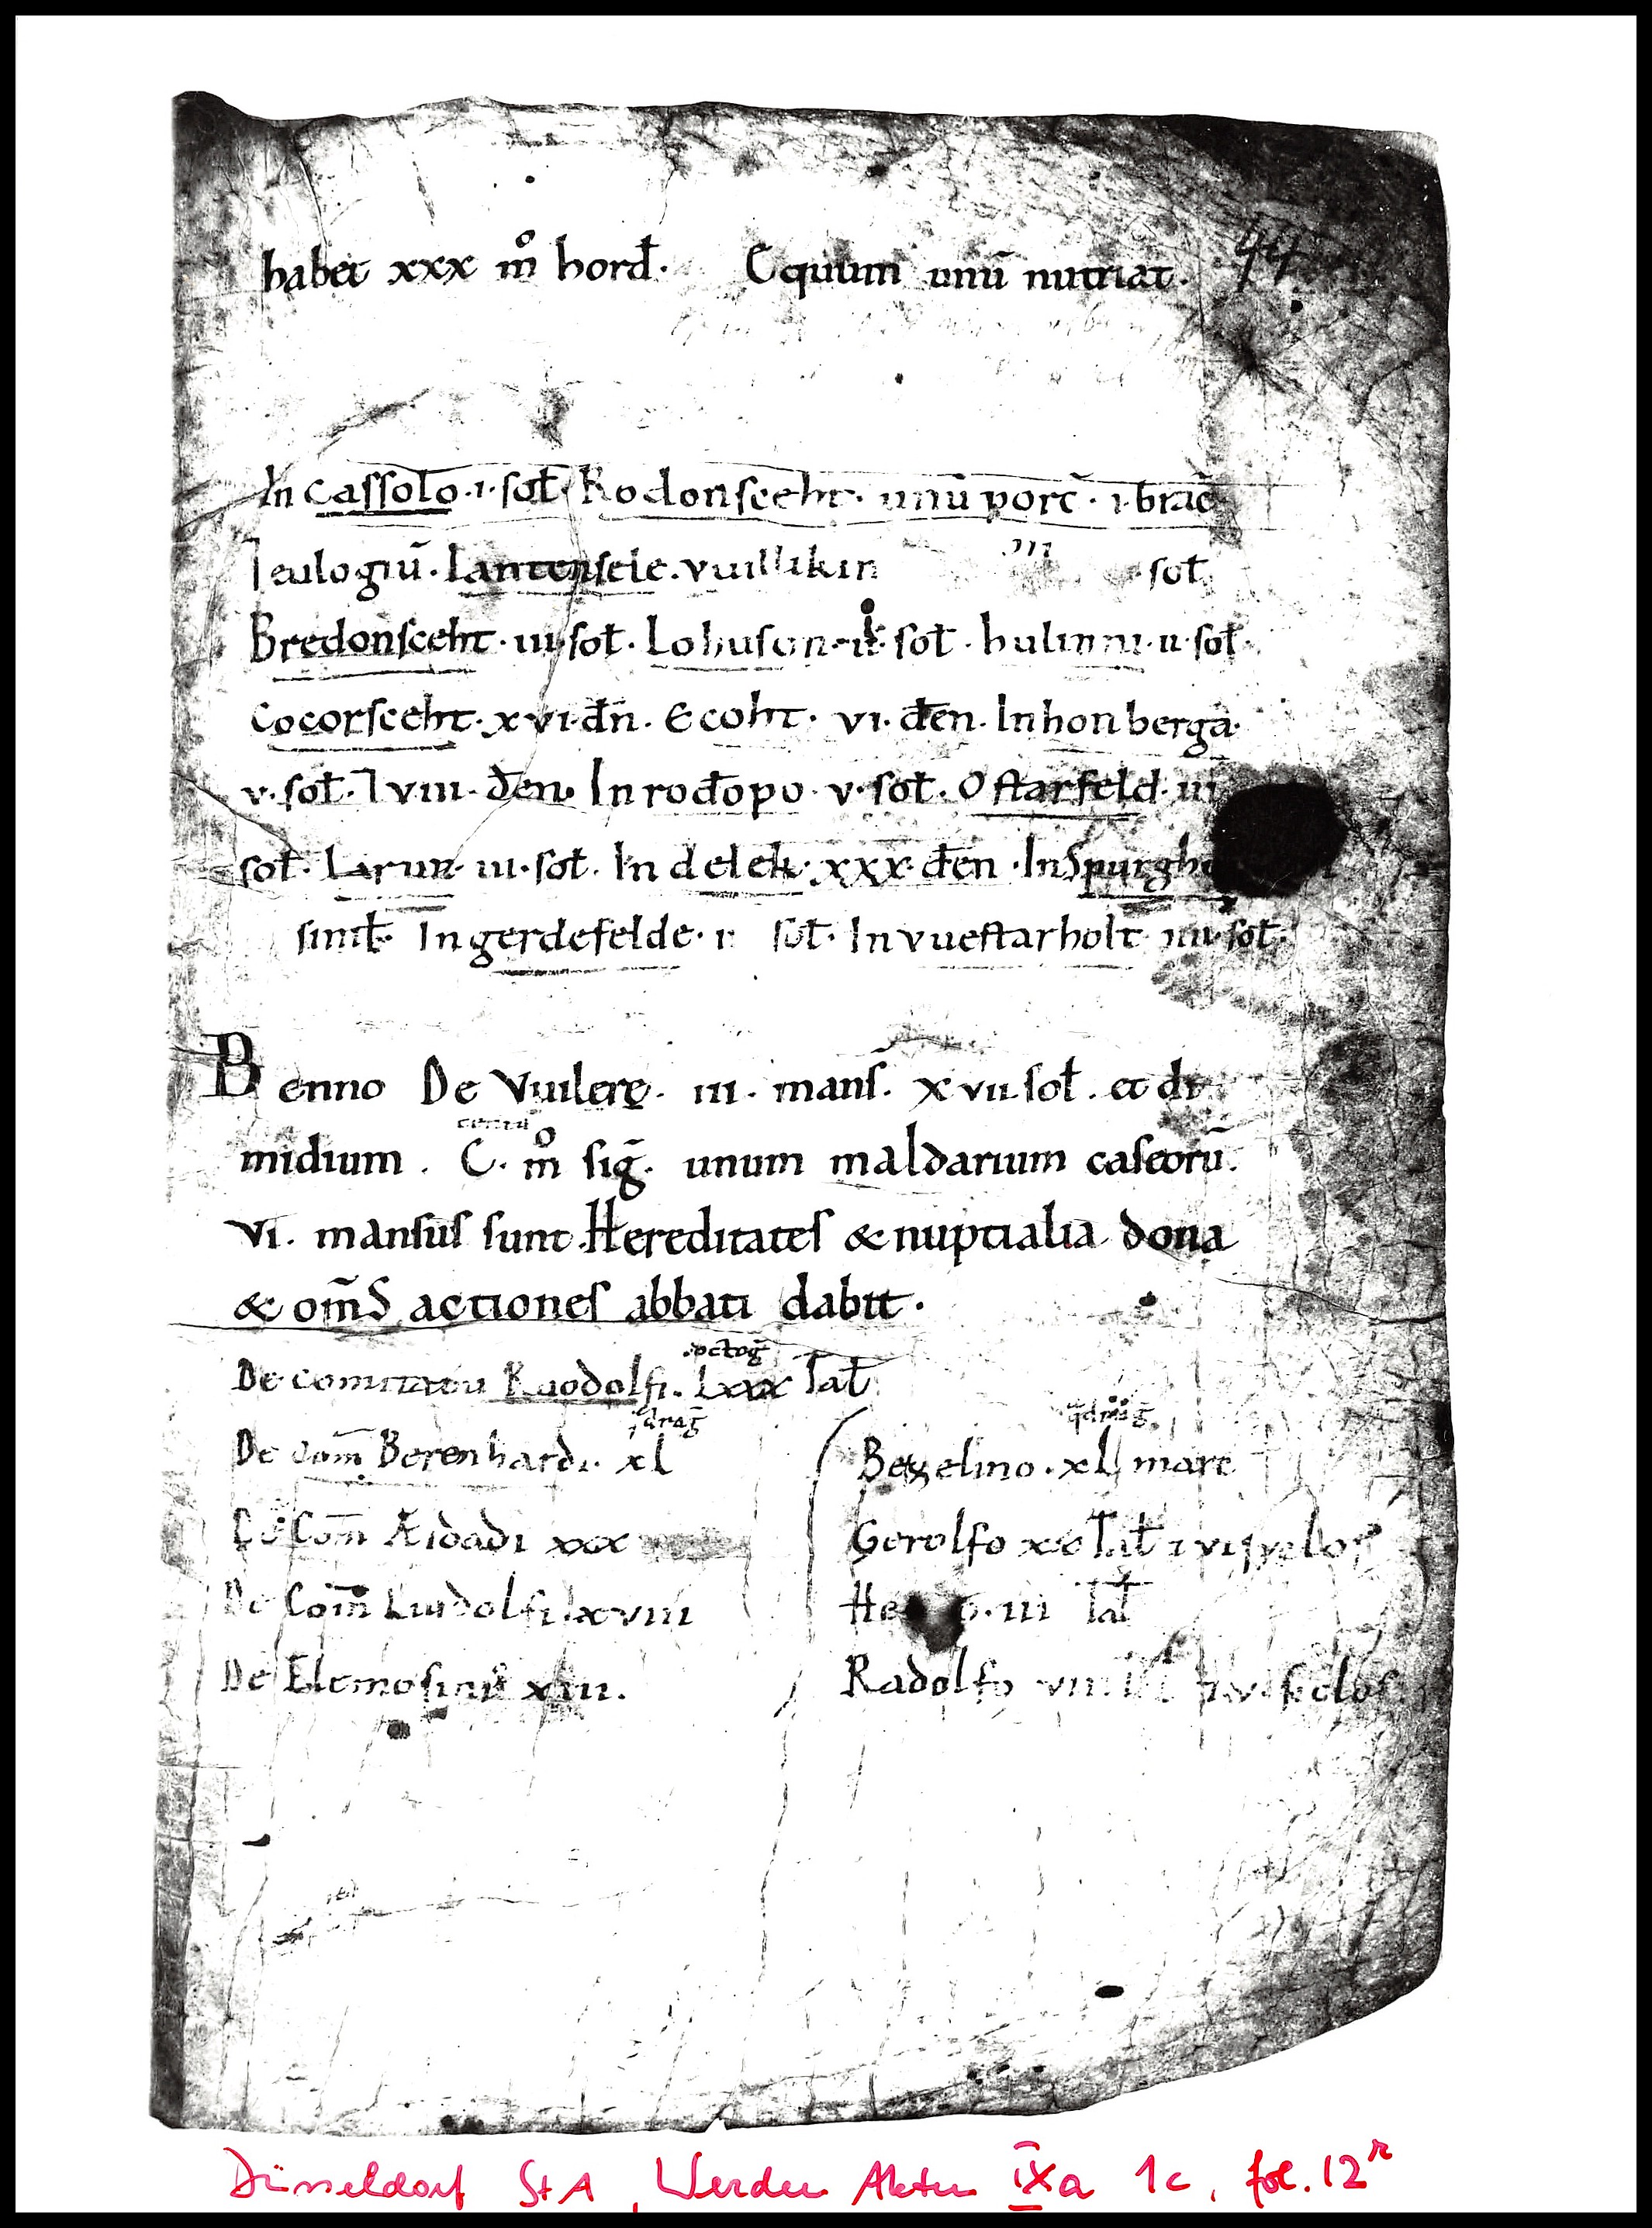 habet xxx m̊ horđ. Equum unū nutriat. 44
In cassolo · i · soł Rodonsceht · unū porc̄ · i · brac̄
⁊ eulogiū · Lantensele · vuillikin iii · soł
Bredonsceht · iii · soł · Lohuson · ii · soł · hulinni · ii · soł ·
Cocorsceht · xvi · dn̄ · Ecoht · vi · đen · In honberga ·
v · soł · ⁊ viii · đen · In rođopo · v · soł · Ostarfeld · iii
soł · Larun · iii · soł · In delek · xxx · đen · In Spurgh
simł · In gerdefelde · i soł · In vuestarholt · iiii · soł ·
Benno De Vuilerę · iii · mans̄ · xvii · soł · et di
midium · C · m̊ siḡ · unum maldarium caseorū ·
VI · mansus sunt · Hereditates & nuptialia dona
& om̄S actiones abbati dabit ·
octoḡ
De comitatu Ruodolfi · Lxxx Tał
De com̄ Berenhardi · xl
Com̄ Æidadi xxx
De Com̄ Liudolfi · lxviii
De Elemosinis xiii ·
Bezelino · xl marc
Gerolfo xc Tał
He o · iii Tał
Radolfo
Düsseldorf StA, Werden Akten IXa 1c, fol. 12r